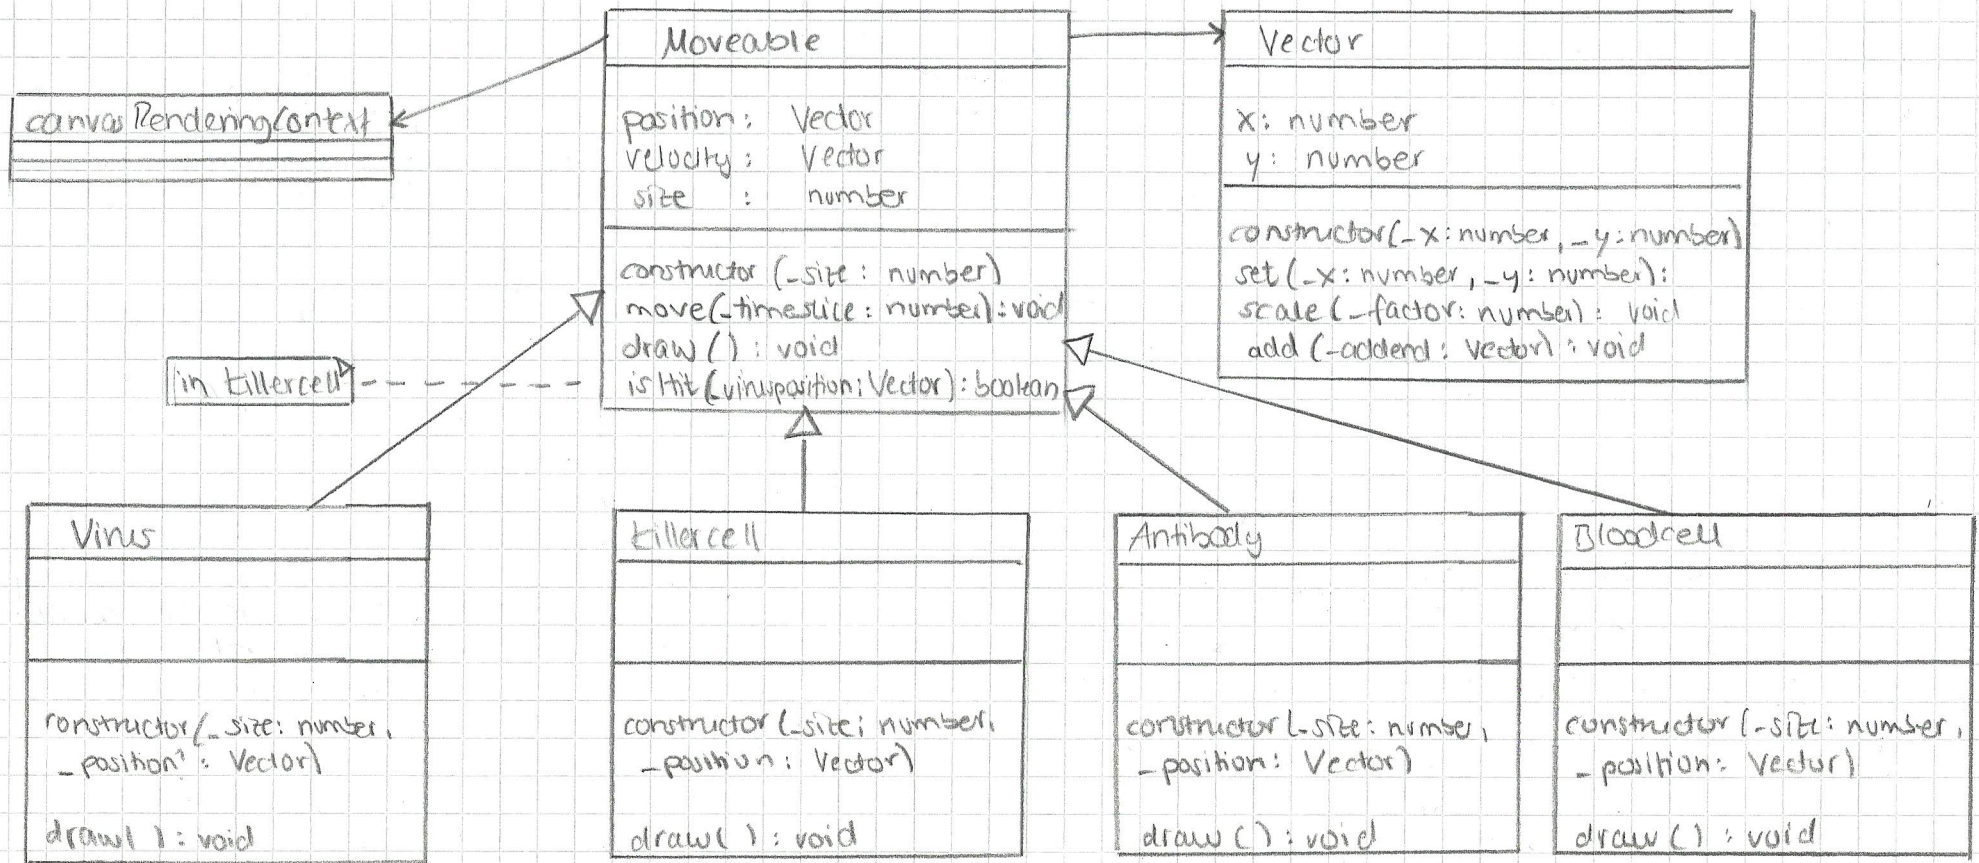 Moveable
position: Vector
velocity: Vector
size : number
constructor (_size: number)
move(_timeslice: number): void
draw(): void
isHit(_virusposition: Vector): boolean
canvasRenderingContext
Vector
x: number
y: number
constructor(_x: number, _y: number)
set(_x: number, _y: number):
scale (_factor: number): void
add (_addend: Vector): void
in killercell
Virus
constructor(_size: number,
_position: Vector)
draw(): void
killercell
constructor(_size: number,
_position: Vector)
draw(): void
Antibody
constructor(_size: number,
_position: Vector)
draw(): void
Bloodcell
constructor (_size: number,
_position: Vector)
draw(): void